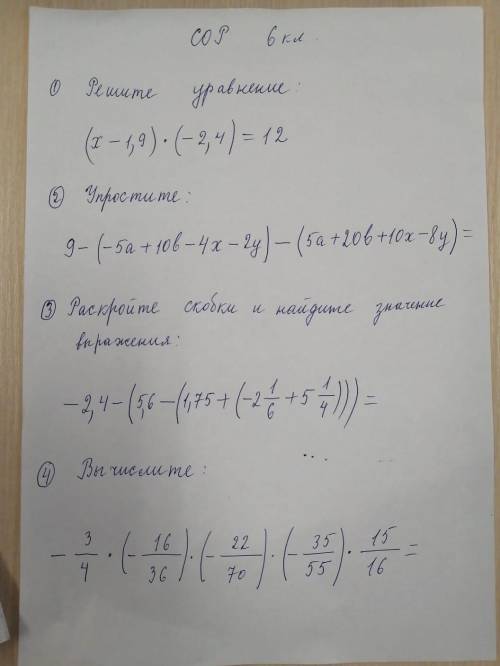 СОР 6 кл.
① Решите уравнение:
(x - 1,9) · (-2,4) = 12
② Упростите:
9 - (-5a + 10b - 4x - 2y) - (5a + 20b + 10x - 8y) =
③ Раскройте скобки и найдите значение
выражения:
-2,4 - (5,6 - (1,75 + (-2 1/6 + 5 1/4))) =
④ Вычислите:
- 3/4 · (- 16/36) · (- 22/70) · (- 35/55) · 15/16 =